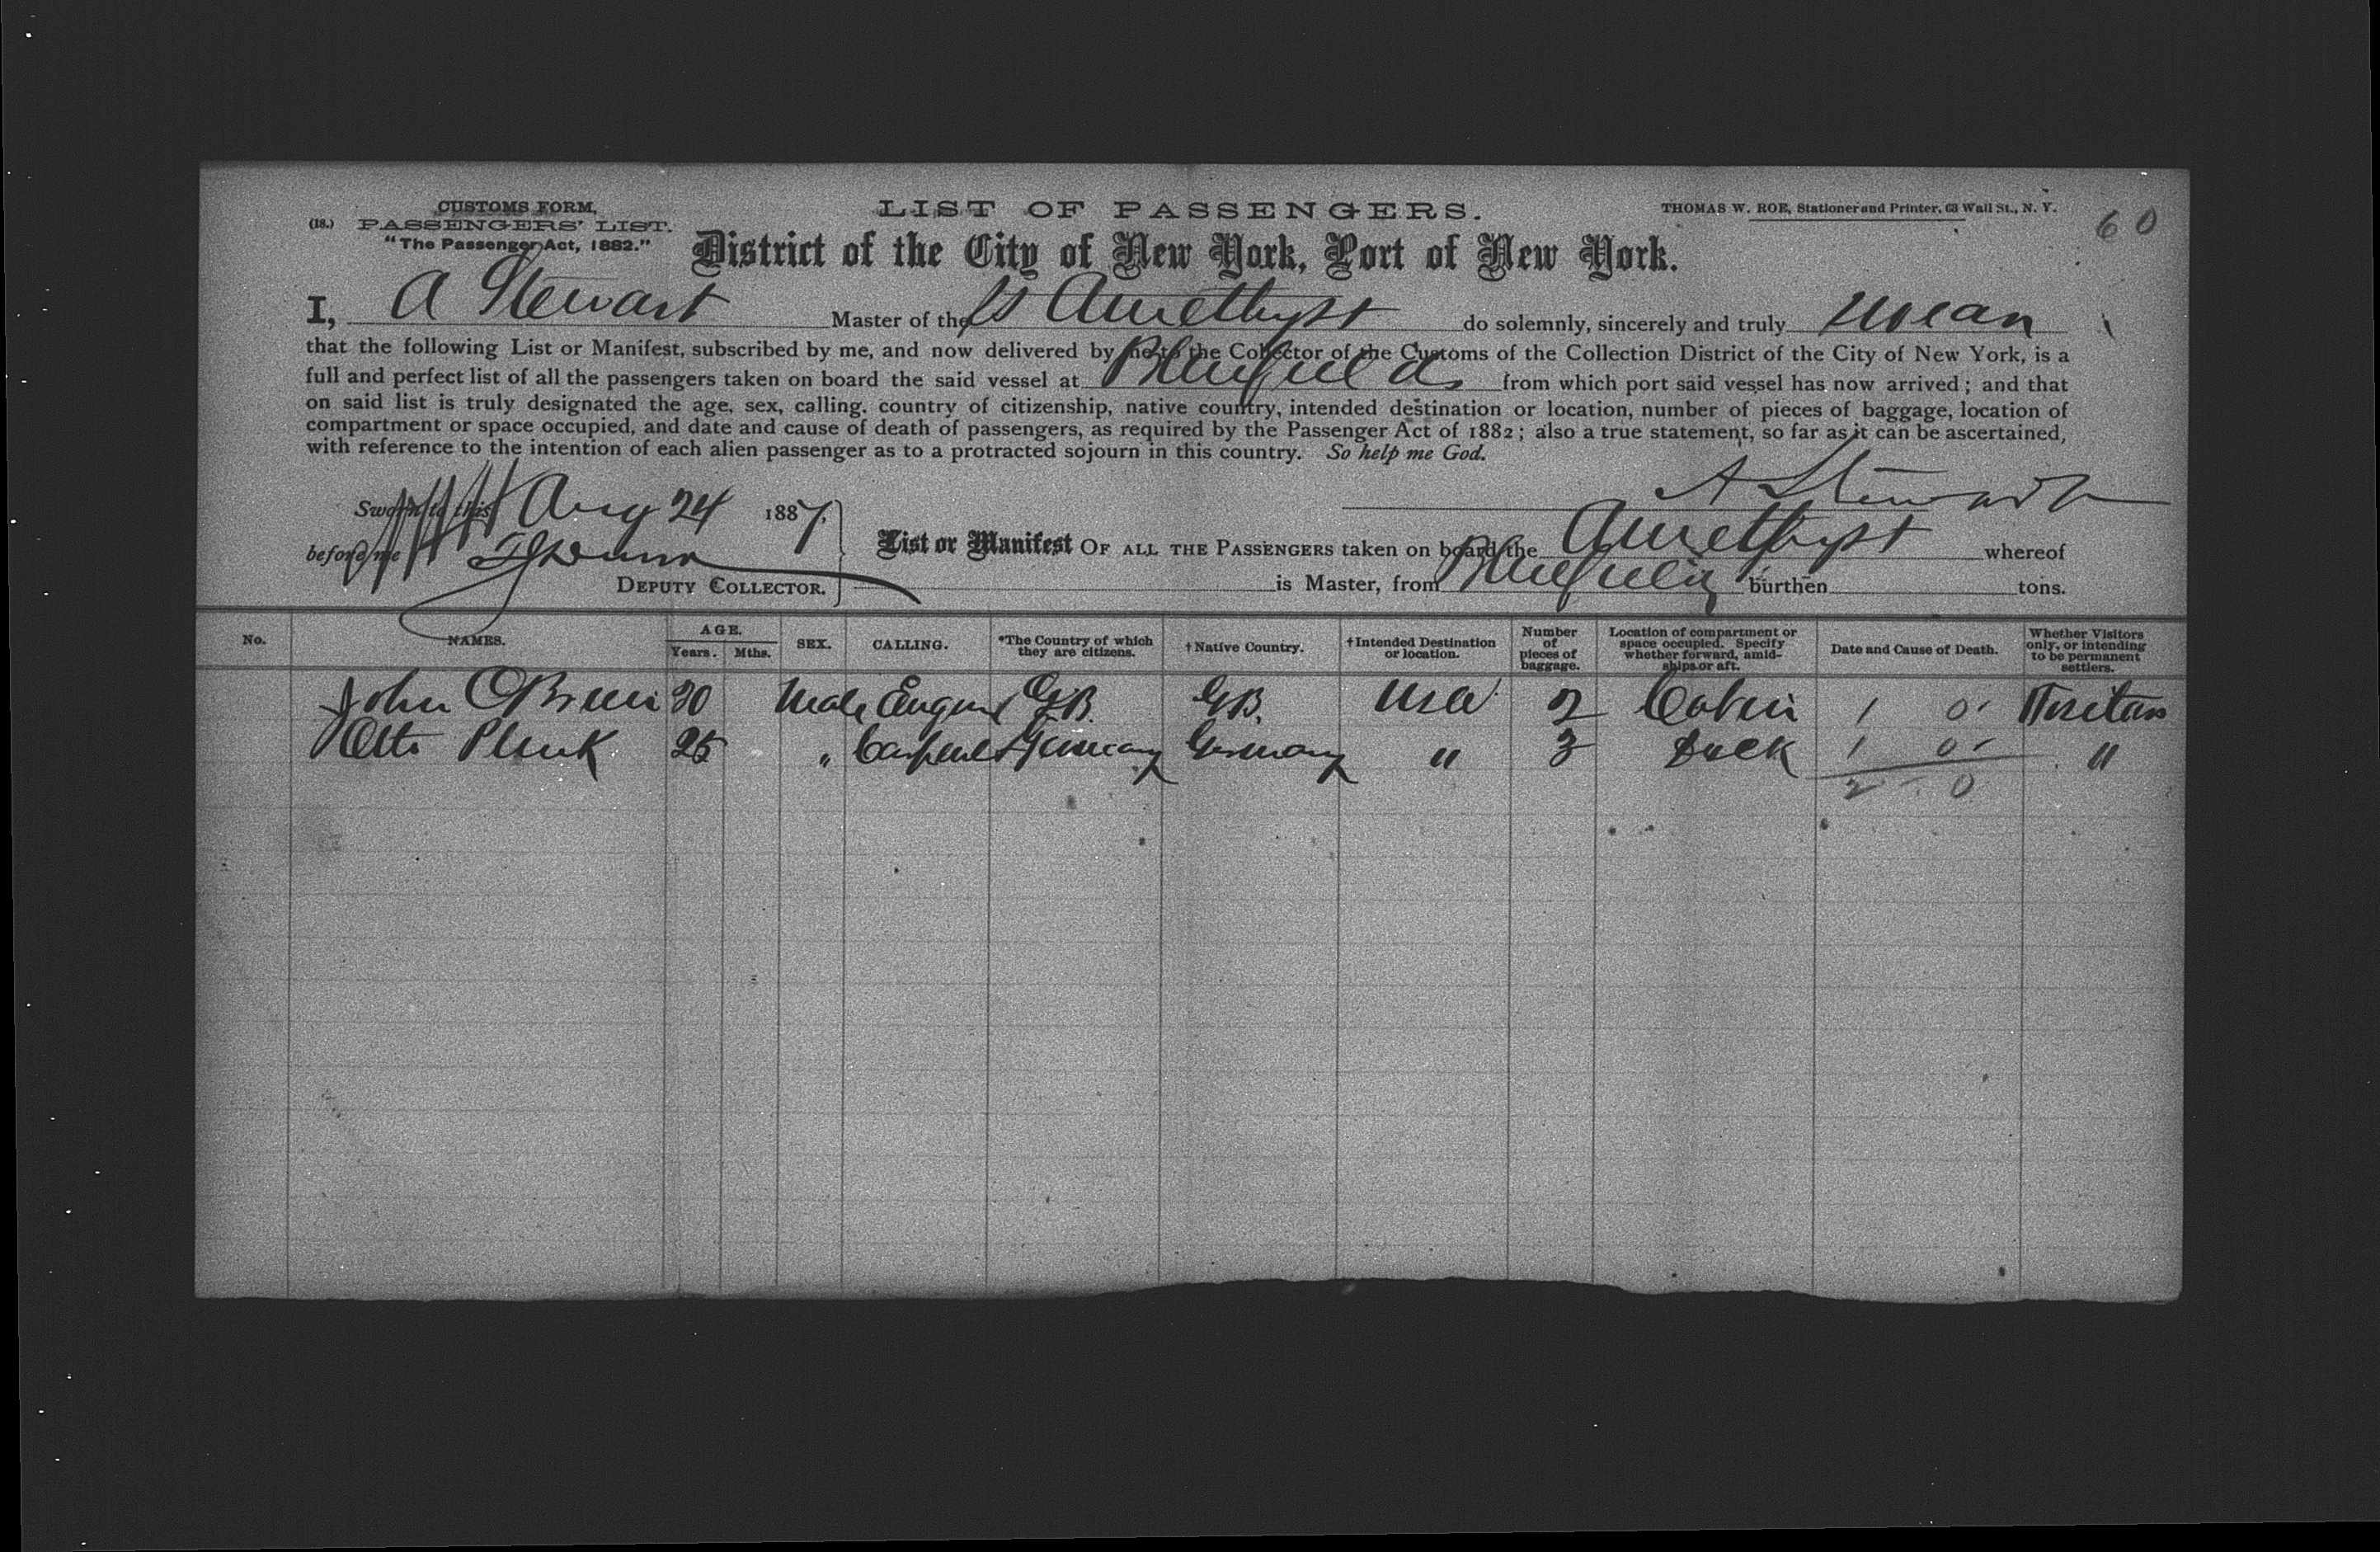 CUSTOMS FORM,
(18.) PASSENGERS' LIST.
"The Passenger Act, 1882."
LIST OF PASSENGERS.
THOMAS W. ROE, Stationer and Printer, 63 Wall St., N. Y.
60
District of the City of New York, Port of New York.
I, A Stewart Master of the SS Amethyst do solemnly, sincerely and truly swear
that the following List or Manifest, subscribed by me, and now delivered by me to the Collector of the Customs of the Collection District of the City of New York, is a
full and perfect list of all the passengers taken on board the said vessel at Bluefields from which port said vessel has now arrived; and that
on said list is truly designated the age, sex, calling, country of citizenship, native country, intended destination or location, number of pieces of baggage, location of
compartment or space occupied, and date and cause of death of passengers, as required by the Passenger Act of 1882; also a true statement, so far as it can be ascertained,
with reference to the intention of each alien passenger as to a protracted sojourn in this country. So help me God.
A Stewart
Sworn to this Aug 24 1887,
before me
DEPUTY COLLECTOR.
List or Manifest OF ALL THE PASSENGERS taken on board the Amethyst whereof
is Master, from Bluefields burthen tons.
No. NAMES. AGE. Years. Mths. SEX. CALLING. *The Country of which they are citizens. †Native Country. †Intended Destination or location. Number of pieces of baggage. Location of compartment or space occupied. Specify whether forward, amidships or aft. Date and Cause of Death. Whether Visitors only, or intending to be permanent settlers.
John OBrien 30 Male Engineer G.B. G.B. USA 2 Cabin 1 0
Otto Plenk 25 " Carpenter Germany Germany " 3 Deck 1 0 "
2 0